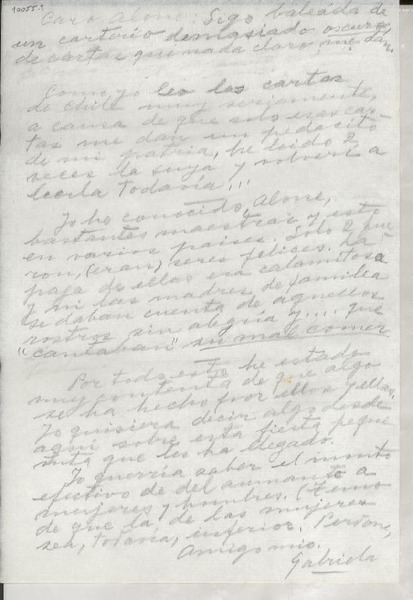 10055.1
Caro Alone: Sigo baleada de
un carterío demasiado oscuro,
de cartas que nada claro me dan.
Como yo leo las cartas
de Chile muy seriamente,
a causa de que solo esas car
tas me dan un pedacito
de mi patria, he leido 2
veces la suya y volveré a
leerla todavía!!!
Yo he conocido, Alone,
bastantes maestras y esto
en varios países. Solo 2 fue
ron, (eran) seres felices. La
paga de ellos era calamitosa
y ni las madres de familia
se daban cuenta de aquellos
rostros sin alegría y.... que
"cantaban" su mal comer
Por todo esto he estado
muy contenta de que algo
se ha hecho por ellos y ellas.
Yo quisiera decir algo desde
aquí sobre esta fiesta pequi
nita que les ha llegado.
Yo querría saber el monto
efectivo de del aumento a
mujeres y hombres. (Temo
de que la de las mujeres
sea, todavía, inferior. Perdón,
Amigo mio.
Gabriela